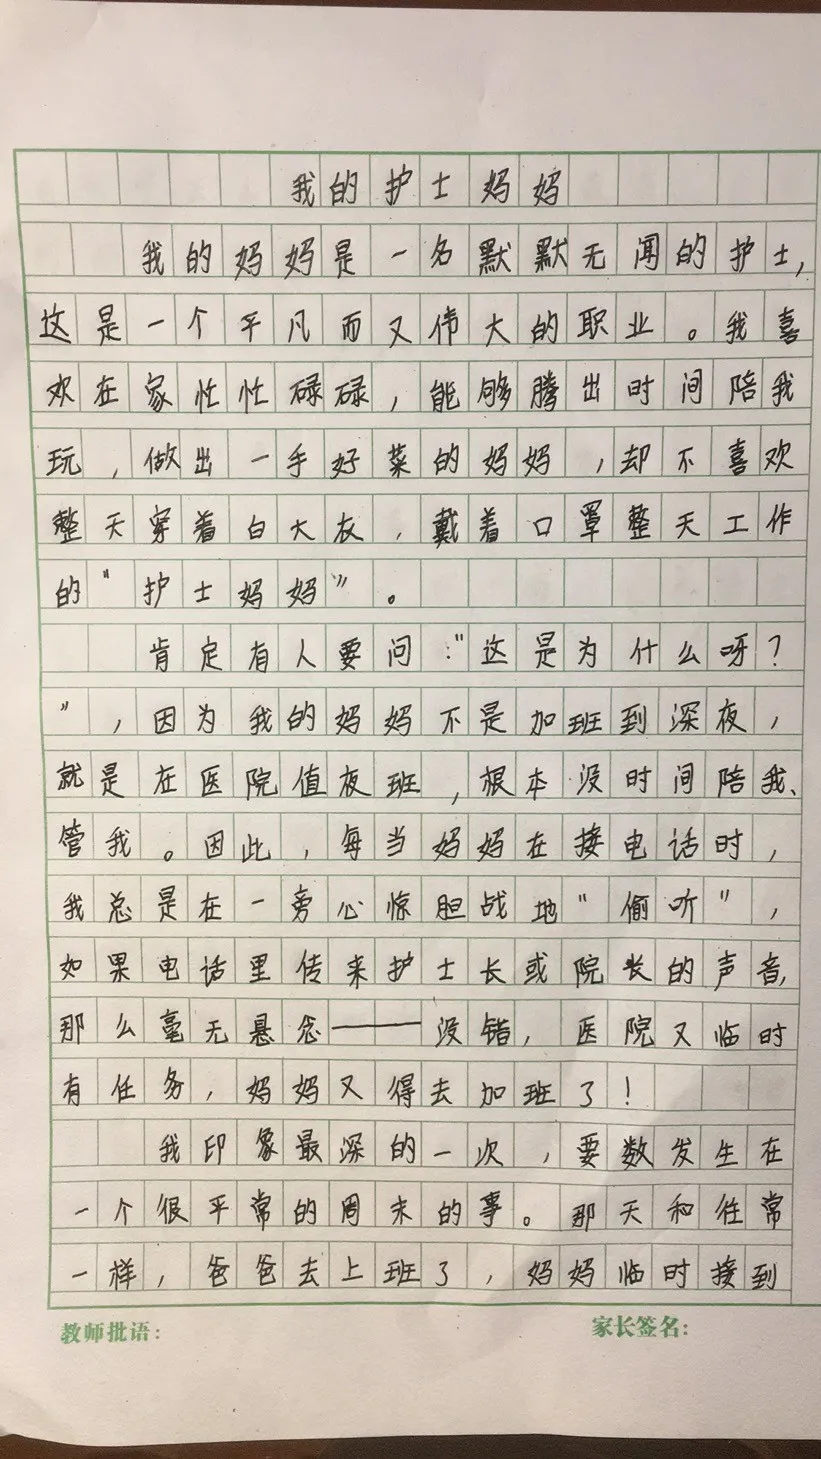 我的护士妈妈
我的妈妈是一名默默无闻的护士,
这是一个平凡而又伟大的职业。我喜
欢在家忙忙碌碌,能够腾出时间陪我
玩,做出一手好菜的妈妈,却不喜欢
整天穿着白大衣,戴着口罩整天工作
的“护士妈妈”。
肯定有人要问:“这是为什么呀?
”,因为我的妈妈不是加班到深夜,
就是在医院值夜班,根本没时间陪我、
管我。因此,每当妈妈在接电话时,
我总是在一旁心惊胆战地“偷听”,
如果电话里传来护士长或院长的声音,
那么毫无悬念——没错,医院又临时
有任务,妈妈又得去加班了!
我印象最深的一次,要数发生在
一个很平常的周末的事。那天和往常
一样,爸爸去上班了,妈妈临时接到
教师批语:
家长签名: